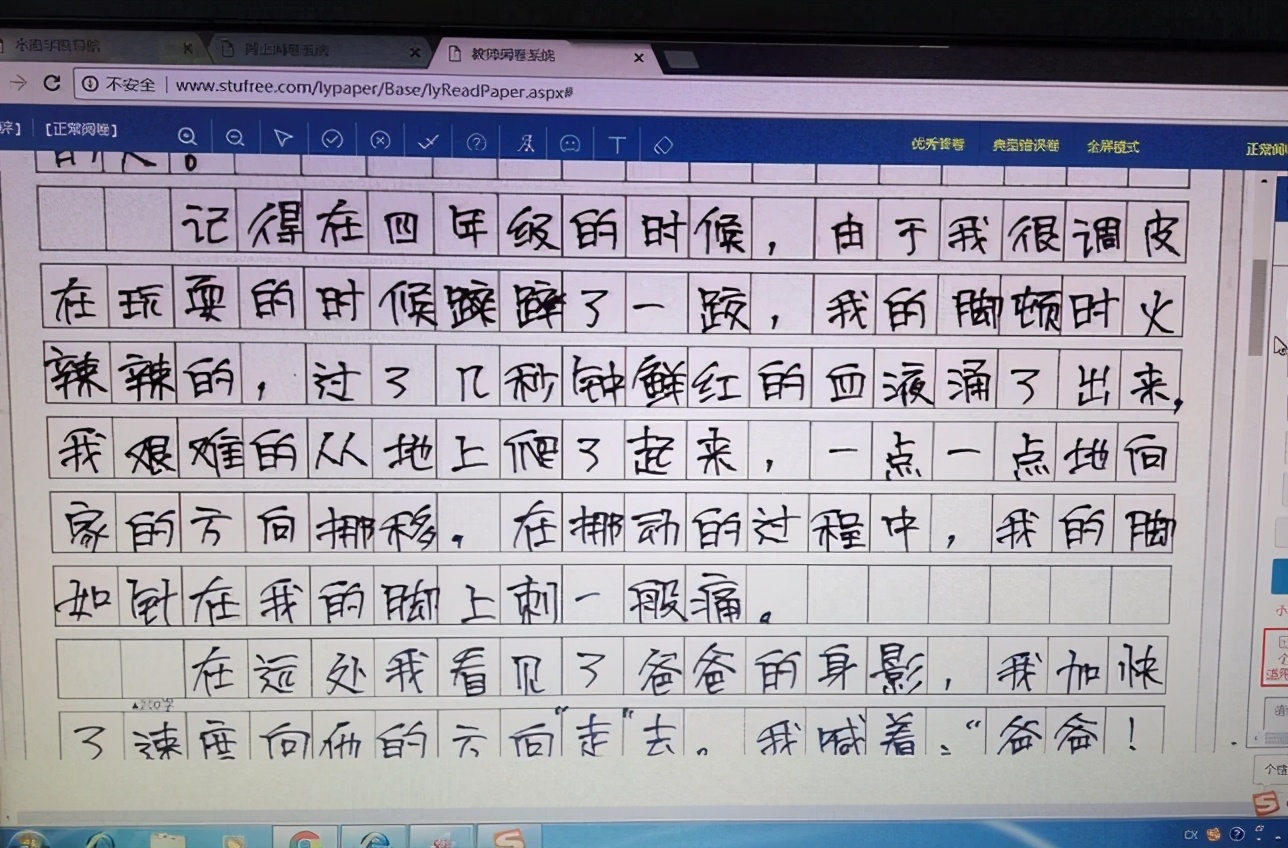 教师阅卷系统
不安全 www.stufree.com/lypaper/Base/lyReadPaper.aspx#
【正常阅卷】
优秀答卷 典型错误卷 全屏模式 正常阅
的人。
记得在四年级的时候，由于我很调皮
在玩耍的时候蹿了一跤，我的脚顿时火
辣辣的，过了几秒钟鲜红的血液涌了出来，
我艰难的从地上爬了起来，一点一点地向
家的方向挪移。在挪动的过程中，我的脚
如针在我的脚上刺一般痛。
在远处我看见了爸爸的身影，我加快
了速度向他的方向“走”去。我喊着、“爸爸！